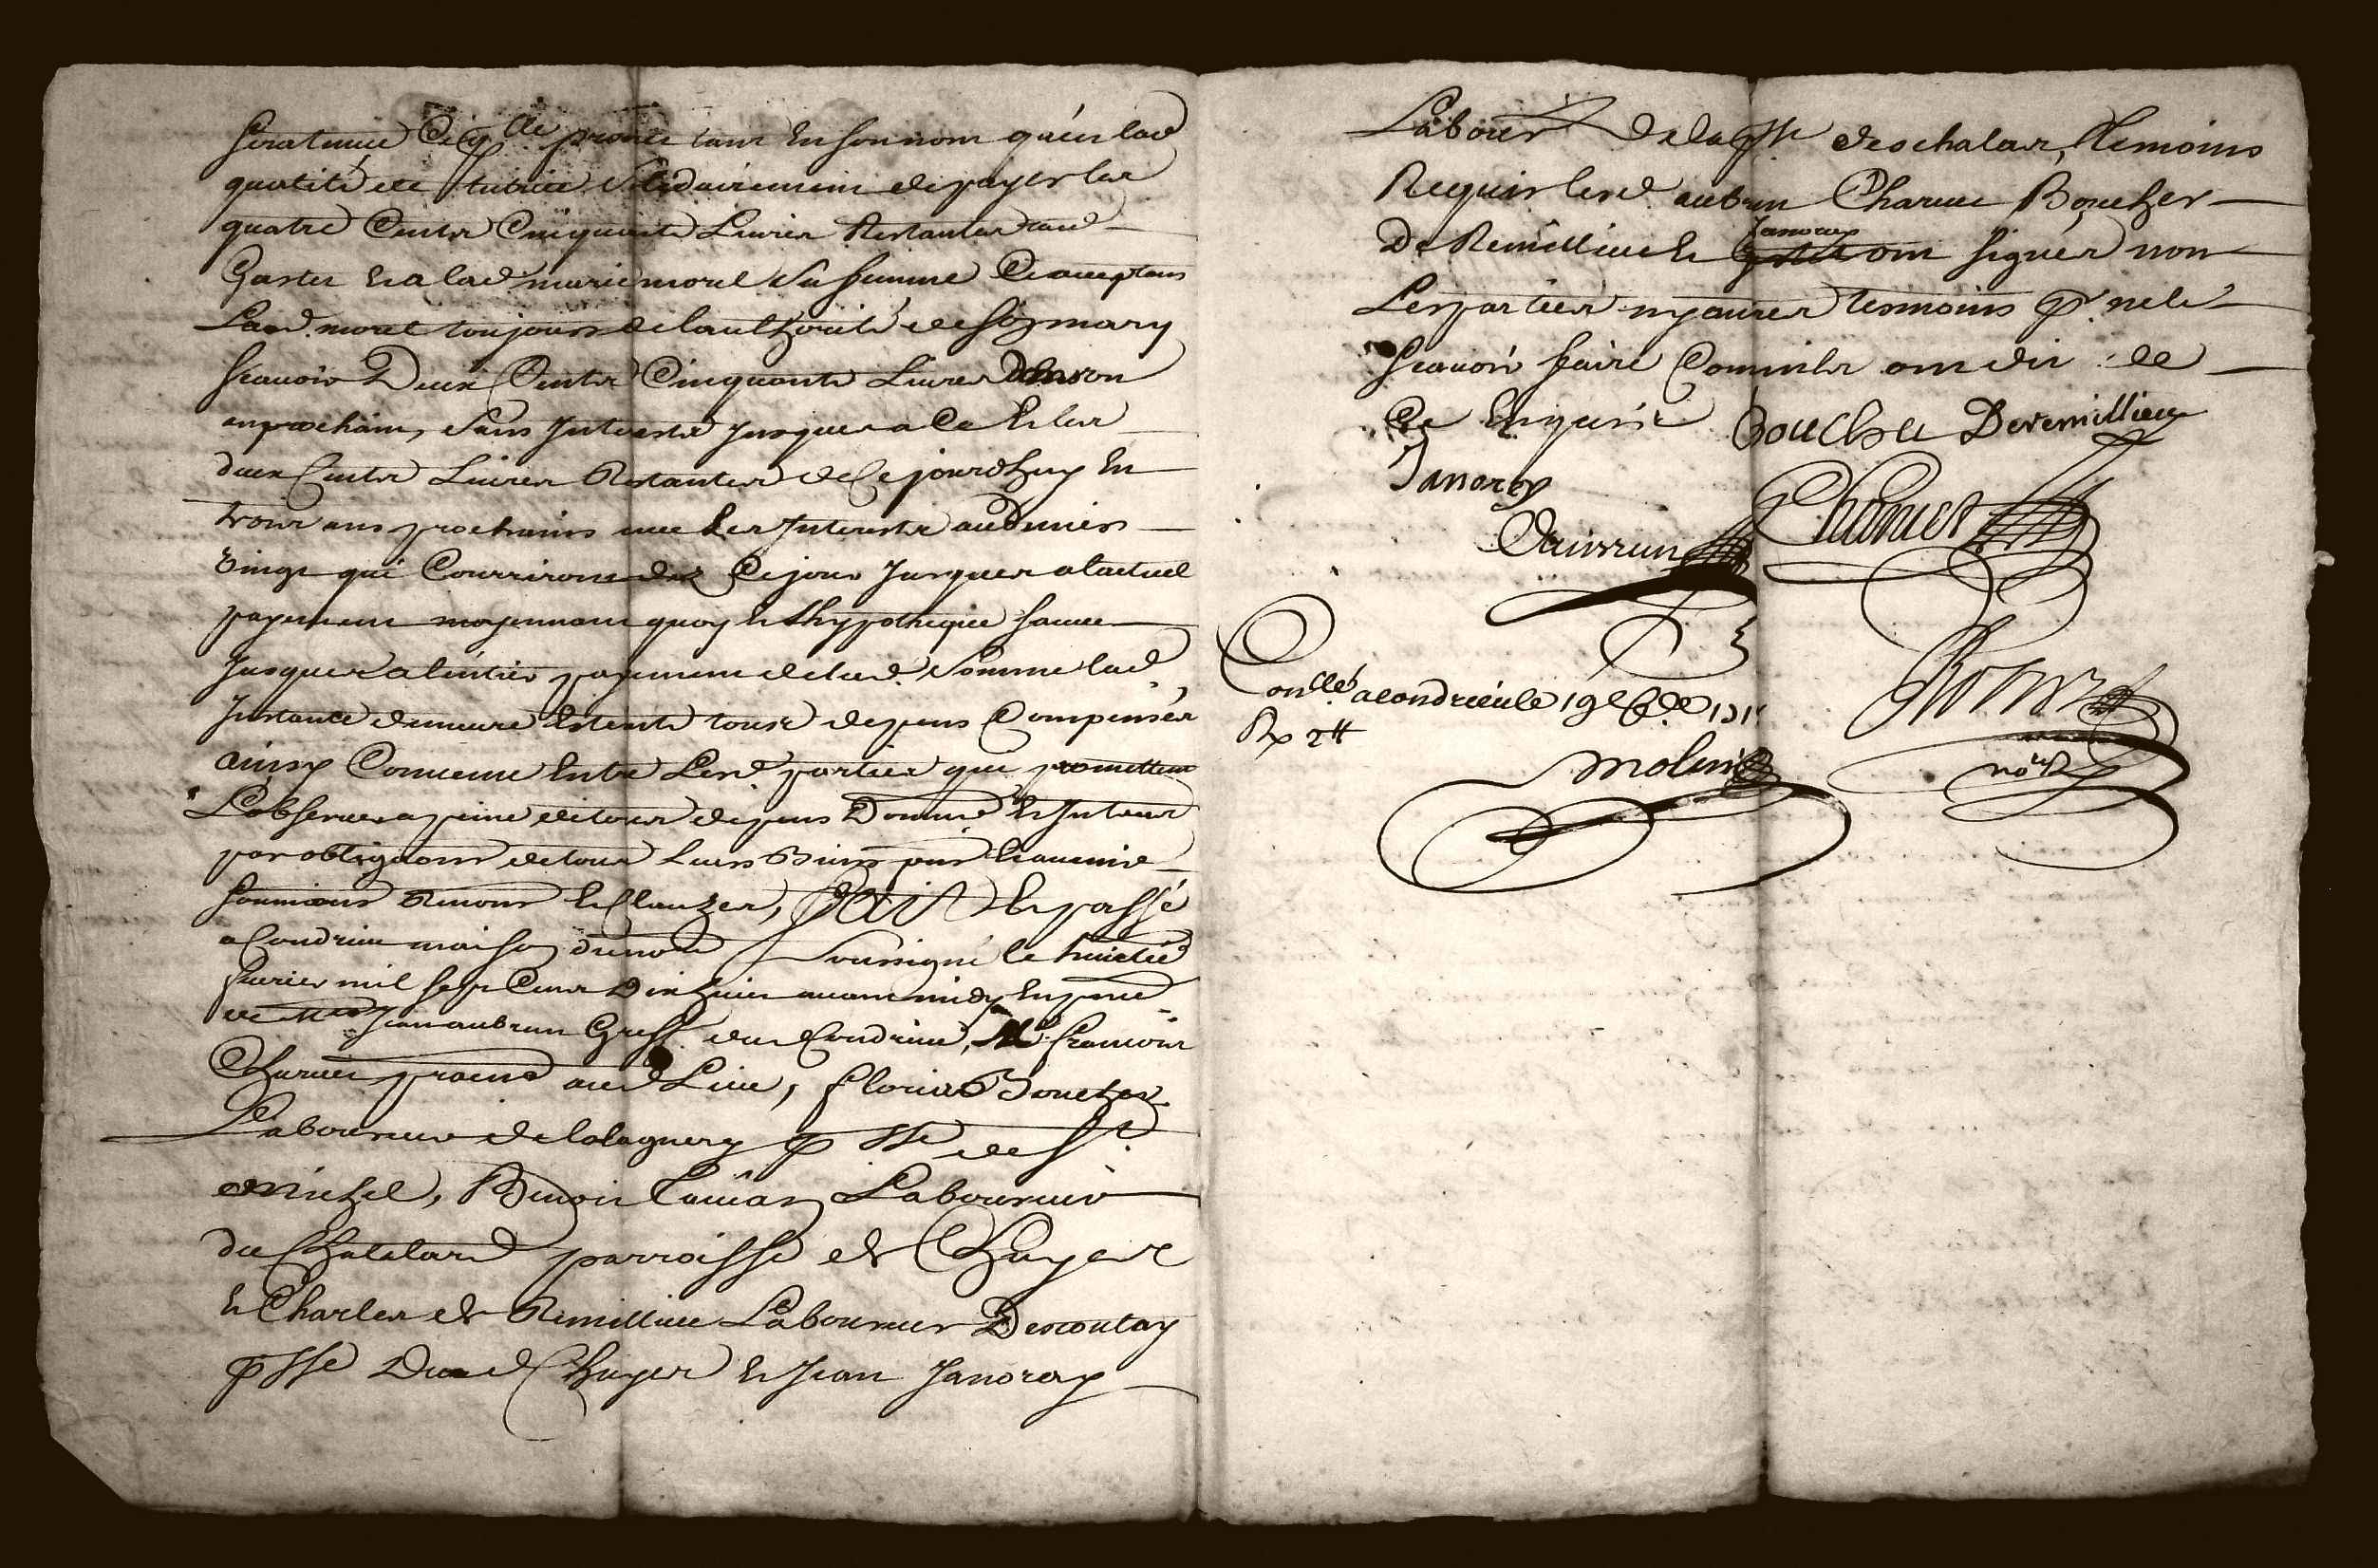 sera tenue Ce qlle promet tant En son nom qu'en lad
qualité de tutrice solidairement de payer les
quatre Cents Cinquante Livres Restantes aud
Gaster Et a lad marie morel sa femme Ce acceptans
Lad. morel toujours de lauthorité de son mary
scavoir Deux Cents Cinquante Livres
en prochain, sans Interests Jusques a Ce Et les
deux Cents Livres Restantes de Ce jourdhuy En
trois ans prochains avec Les Interests au denier
vingt qui Courriront dez Ce jour Jusques alactuel
payement moyennant quoy Et lhypotheque sauve
Jusques a lentier payement de lad. Somme lad
Instance demeure Esteinte tous depens Compensés
ainsy Convenu Entre Lesd parties qui promettent
Lobserver a peine de tous depens Domme Et Interest
par obligaons de tous Leurs Biens pnts Et avenir
soumions Renons Et Clauzes, Fait Et passé
a Condrieu maison du nore soussigné le huictie
fevrier mil sept Cens Dix huict avant midy En pnce
de Me Jean aubrun Greff. de Condrieu, Me francois
Charvet praend aud Lieu, florie Boucher
Laboureur de lolagnery psse de St.
michel, Benoit Laboureur
du Chatelard parroisse de Chuyer
Et Charles de Remillieu Laboureur Descoutay
psse Dud Chuyer Et Jean Janorey
Labour de la psse deschalas, temoins
Requis lesd. aubrun Charvet Boucher
De Remillieu Et Janorey ont signés non
Les parties ny autres tesmoins pr. ne le
scavoir faire Comm'ils ont dit de
Ce Enquis Bouche Deremillieu
Janorey
Charvet
Conllé a Condrieu le 19e
Rx 2tt
Molin
nore